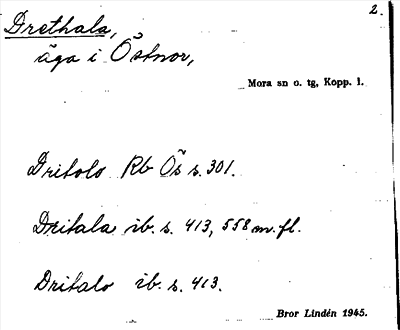 2.
Drethala,
äga i Östnor,
Mora sn o. tg, Kopp. l.
Dritolo Rb Ös s. 301.
Dritala ib. s. 413, 558 m. fl.
Dritalo ib. s. 413.
Bror Lindén 1945.